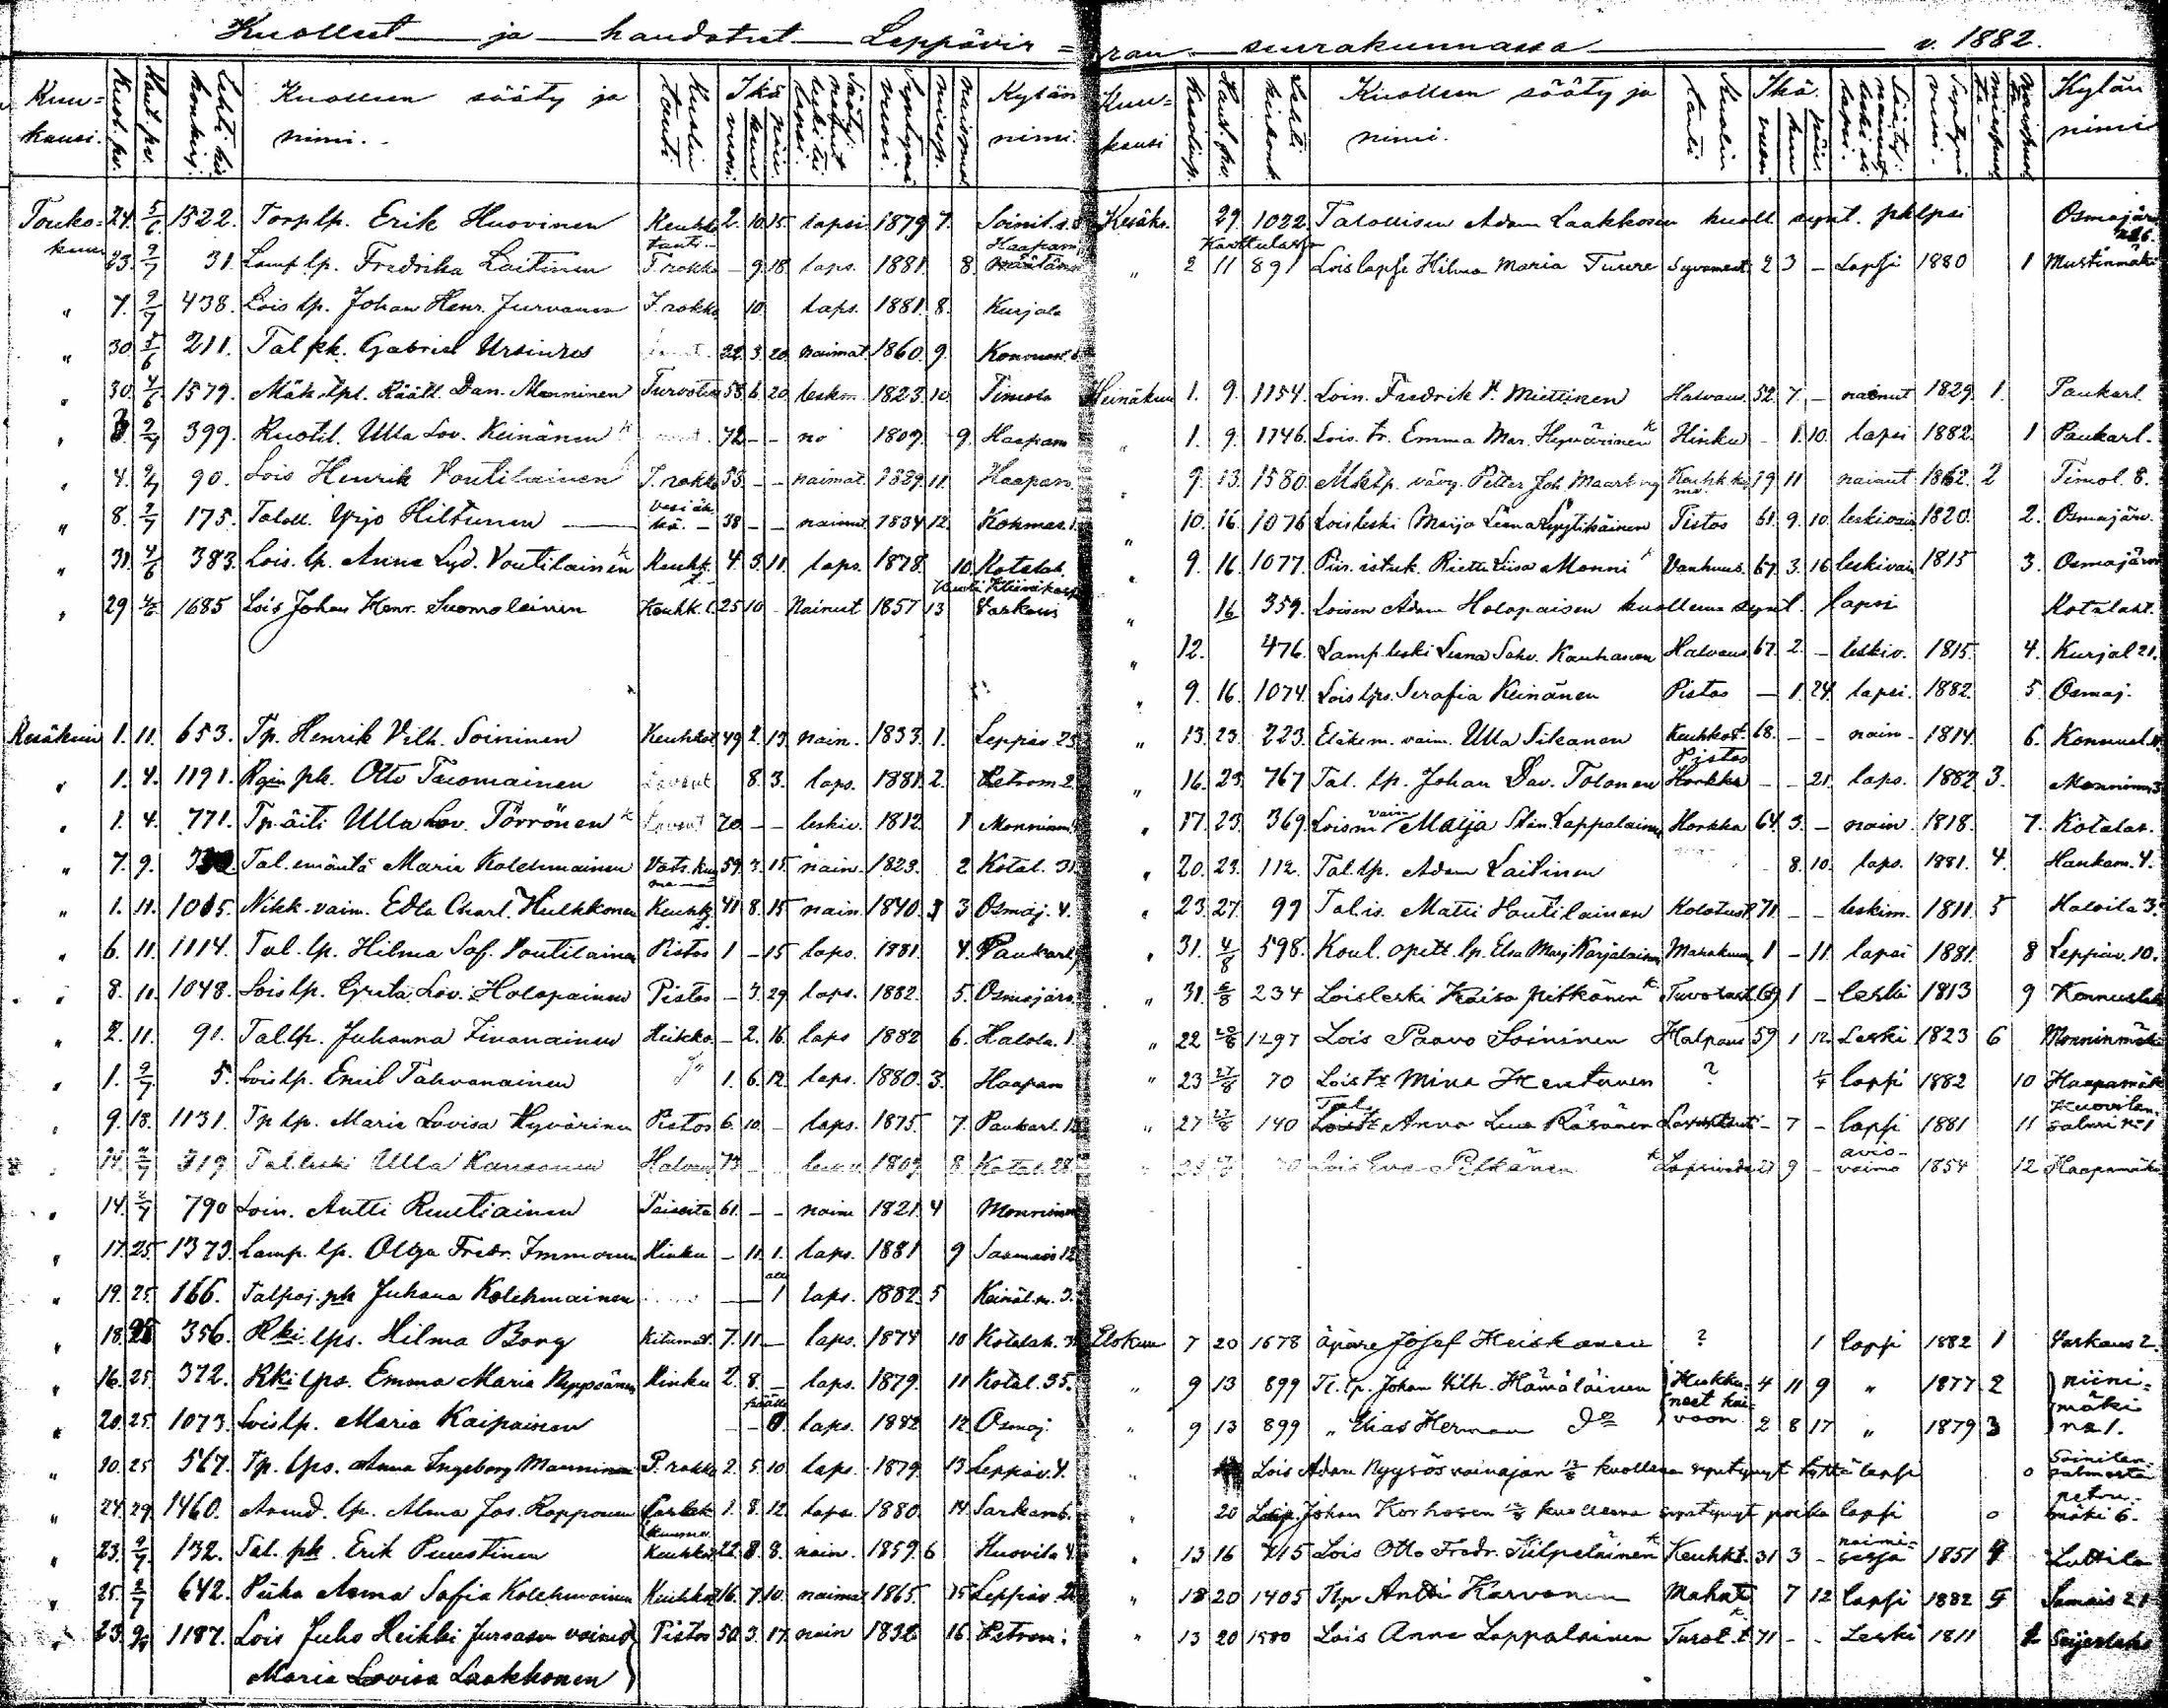 Kuolleet ja haudatut Leppävir=
Kuu= kausi. Kuol. pv. Haut. pv. Lehti ki konkirj. Kuolleen sääty ja nimi. Kuolin tauti Ikä vuosi. kuu päiv. Sääty: naimat leski t. lapsi. Syntymä vuosi. miesp. naisp. Kylän nimi.
Touko= kuun 24. 5/6 1522. Torp lp. Erik Huovinen Keuhko tauti 2. 10. 15. lapsi 1879 7. Soinil. s. 5
23. 2/7 31. Lamp lp. Fredrika Laitinen T. rokko - 9. 18. laps. 1881. 8 Haapam
" 7. 2/7 438. Lois lp. Johan Henr. Jurvanen I. rokko 10. laps. 1881. 8. Kurjala
" 30 5/6 211. Tal pk. Gabriel Ursinus 22. 3. 20. naimat. 1860. 9.
" 30. 4/6 1579. Mäk. tpl. Räätl. Dan. Manninen Turvotus 58 6. 20 leskm. 1823. 10. Timola
" 2/7 399. Ruotil. Ulla Lov. Keinänen 72 - - no 1809. 9. Haapam
" 4. 2/7 90. Lois Henrik Voutilainen I. rokko 53. - - naimat. 1829. 11. Haapam.
" 8. 2/7 175. Taloll. Yrjö Hiltunen vesi äk kä. 38 - - naimat 1834 12. Kohmas. 1.
" 31. 4/6 383. Lois. lp. Anna Lyd. Voutilainen Keuhk. 4. 3. 11. laps. 1878. 10. Kotalah.
" 29 4/6 1685 Lois Johan Henr. Suomalainen Keuhk. t. 25 10 - Nainut 1857 13 Varkaus
Kesäkuu 1. 11. 653. Tp. Henrik Vilh. Soininen Keuhkot 49 2. 13. nain. 1833. 1. Leppäv. 23
" 1. 4. 1191. Rgin pk. Otto Tuomainen 8. 3. laps. 1881. 2. Petrom. 2.
" 1. 4. 771. Tp. äiti Ulla Lov. Törrönen 70. - - leskiv. 1812. 1 Monninm.
" 7. 9. Tal. emäntä Maria Kolehmainen Vats. kuu me 59. 3. 15. nain. 1823. 2 Kotal. 31.
" 1. 11. 1015. Nikk. vaim. Edla Charl. Hulkkonen Keuhk. 41 8. 15 nain. 1840. 3 Osmaj. 4.
" 6. 11. 1114. Tal. lp. Hilma Sof. Voutilainen Pistos 1 - 15 laps. 1881. 4. Paukarl.
" 8. 11. 1048. Lois lp. Greta Lov. Holopainen Pistos - 3. 29 laps. 1882. 5. Osmajärv.
" 2. 11. 91. Tal. lp. Juhanna Finanainen Heikko - 2. 16. laps 1882 6. Halola. 1.
" 1. 2/7 5. Lois lp. Emil Tahvanainen 1. 6. 12. laps. 1880. 3. Haapam
" 9. 18. 1131. Tp lp. Maria Lovisa Hyvärinen Pistos 6. 10. - laps. 1875. 7. Paukarl. 12
14. 2/7 319. Tal. leski Ulla Kansanen Halvau 73 1809. 8. Kotal. 28.
" 14. 2/7 790 Loin. Antti Ruutiainen Paiseita 61. - - naim 1821. 4 Monninm
" 17. 25. 1373. Lamp. lp. Olga Fredr. Immonen Hinku - 11. 1. laps. 1881 9 Saamais 12
" 19. 25. 166. Talpoj. pk Juhana Kolehmainen - alle 1 laps. 1882. 5 Keinäl. n. 3.
" 18. 25 356. Rki lps. Hilma Borg Kitumat. 7. 11 - laps. 1874 10 Kotalah. 3
" 16. 25. 372. Rki lps. Emma Maria Repponen Hinku 2. 8. - laps. 1879. 11 Kotal. 35.
" 20. 25. 1073. Lois lp. Maria Kaipainen - - 0. laps. 1882 12 Osmaj.
" 20. 25 567. Tp. lps. Anna Ingeborg Manninen P. rokko 2. 5. 10 laps. 1879. 13 Leppäv. 4.
" 24. 29. 1460. Asmd. lp. Alma Jos. Repponen 1. 8. 12 laps. 1880. 14 Sarkamb.
" 23. 2/7 132. Tal. pk. Erik Puustinen Keuhko 22 8. 8. nain. 1859. 6 Kuovila 4.
" 25. 2/7 642. Piika Anna Sofia Kolehmainen Keuhko 16. 7. 10. naimat 1865. 15 Leppäv. 2
" 23. 1187. Lois Juho Heikki Jurvasen vaimo Pistos 50. 3. 17. nain 1832 16 Petrom.
Maria Lovisa Laakkonen
ran seurakunnassa v. 1882.
Kuu= kausi Kuolinp. Haud. pv. Lehti kirkonk. Kuolleen sääty ja nimi. Kuolin tauti Ikä. vuosi kuu päiv. Sääty: nainut leski t. lapsi. Syntym. vuosi. miespuol. naispuol. Kylän nimi
Kesäku. 29. 1022. Talollisen Adam Laakkosen kuoll. synt. pklpsi Osmajärv n:o 6.
" 2 11 891 Karttulassa Lois lapse Hilma Maria Turere 2 3 - Lapsi 1880 1 Mustinmäki
Heinäkuu 1. 9. 1154. Loin. Fredrik P. Miettinen Halvaus. 52. 7. - nainut 1829. 1. Paukarl.
" 1. 9. 1746. Lois. tr. Emma Mar. Hyvärinen Hinku - 1. 10. lapsi 1882. 1 Paukarl.
" 9. 13. 1580. Mäktp. vävy. Petter Joh. Maarberg 19 11 naiaut 1862. 2 Timol. 8.
" 10. 16. 1076 Lois leski Maija Leena Lyytikäinen Pistos 61. 9. 10. leskivai 1820. 2. Osmajärv.
" 9. 16. 1077. Piir. istuk. Rietta Liisa Monni Vanhuus. 67. 3. 16. leskivai 1815 3. Osmajärvi
" 16 359. Loisen Adam Holopaisen kuollena synt. lapsi Kotalaht.
" 12. 476. Lamp. leski Leena Sohv. Kauhanen Halvaus. 67. 2. - leskiv. 1815. 4. Kurjal 21.
" 9. 16. 1074. Lois lps. Serafia Keinänen Pistos - 1. 24. lapsi. 1882. 5. Osmaj.
" 13. 23. 223. Eläkem. vaim. Ulla Sikanen Keuhkot. 68. - - nain. 1814. 6. Konnusl.
" 16. 23. 767 Tal. lp. Johan Dav. Tolonen Pistos Horkka - - 21. laps. 1882 3. Monninm. 3
" 17. 23. 369. Loism vaim Maija Stin. Lappalainen Horkka 64 3. - nain 1818. 7. Kotalah.
" 20. 23. 112. Tal. lp. Adam Laitinen 8. 10. laps. 1881. 4. Haukam. 4.
" 23. 27. 99 Tal. is. Matti Houtilainen Kolotus 71 - - leskim. 1811. 5 Halvila 3.
" 31. 4/8 598. Koul. opett. lp. Elsa Mary Karjalainen 1 - 11. lapsi 1881. 8 Leppäv. 10.
" 31. 6/8 234 Loisleski Kaisa Pitkänen 69 1 - leski 1813 9 Konnuslah
" 22 20/8 1297 Lois Paavo Soininen Halpaus 59 1 12 Leski 1823 6 Monninmäki
" 23 27/8 70 Lois tr Mina Hentunen ? lapsi 1882 10 Haapamäki
" 27 27/8 140 Tal. Anna Lusa Räsänen - 7 - lapsi 1881 11 Kuovilan salmi n:o 1
Lois Eva Pitkänen 27 9 - avio- vaimo 1854 12 Haapamäki
Elokuu 7 20 1678 äpäre Josef Heiskanen ? 1 lapsi 1882 1 Varkaus 2.
" 9 13 899 Tl. lp. Johan Vilh. Hämäläinen Hukku- neet kai- voon 4 11 9 " 1877 2 niini= mäki no 1.
" 9 13 899 " Elias Herman do 2 8 17 " 1879 3
Lois Adam Ryynös vainajan 13/8 kuollena syntynyt tyttölapsi 0
" 20 Loisp. Johan Korhosen kuollena syntynyt poika lapsi 0 petru- mäki 6.
" 13 16 715 Lois Otto Fredr. Kilpeläinen Keuhkt. 31 3 - 1851 4 Luttila
" 13 20 1405 Tlp Antti Karvonen Mahat. 7 12 lapsi 1882 5 Samais 21
" 13 20 1580 Lois Anna Lappalainen Turot. t. 71 - - Leski 1811